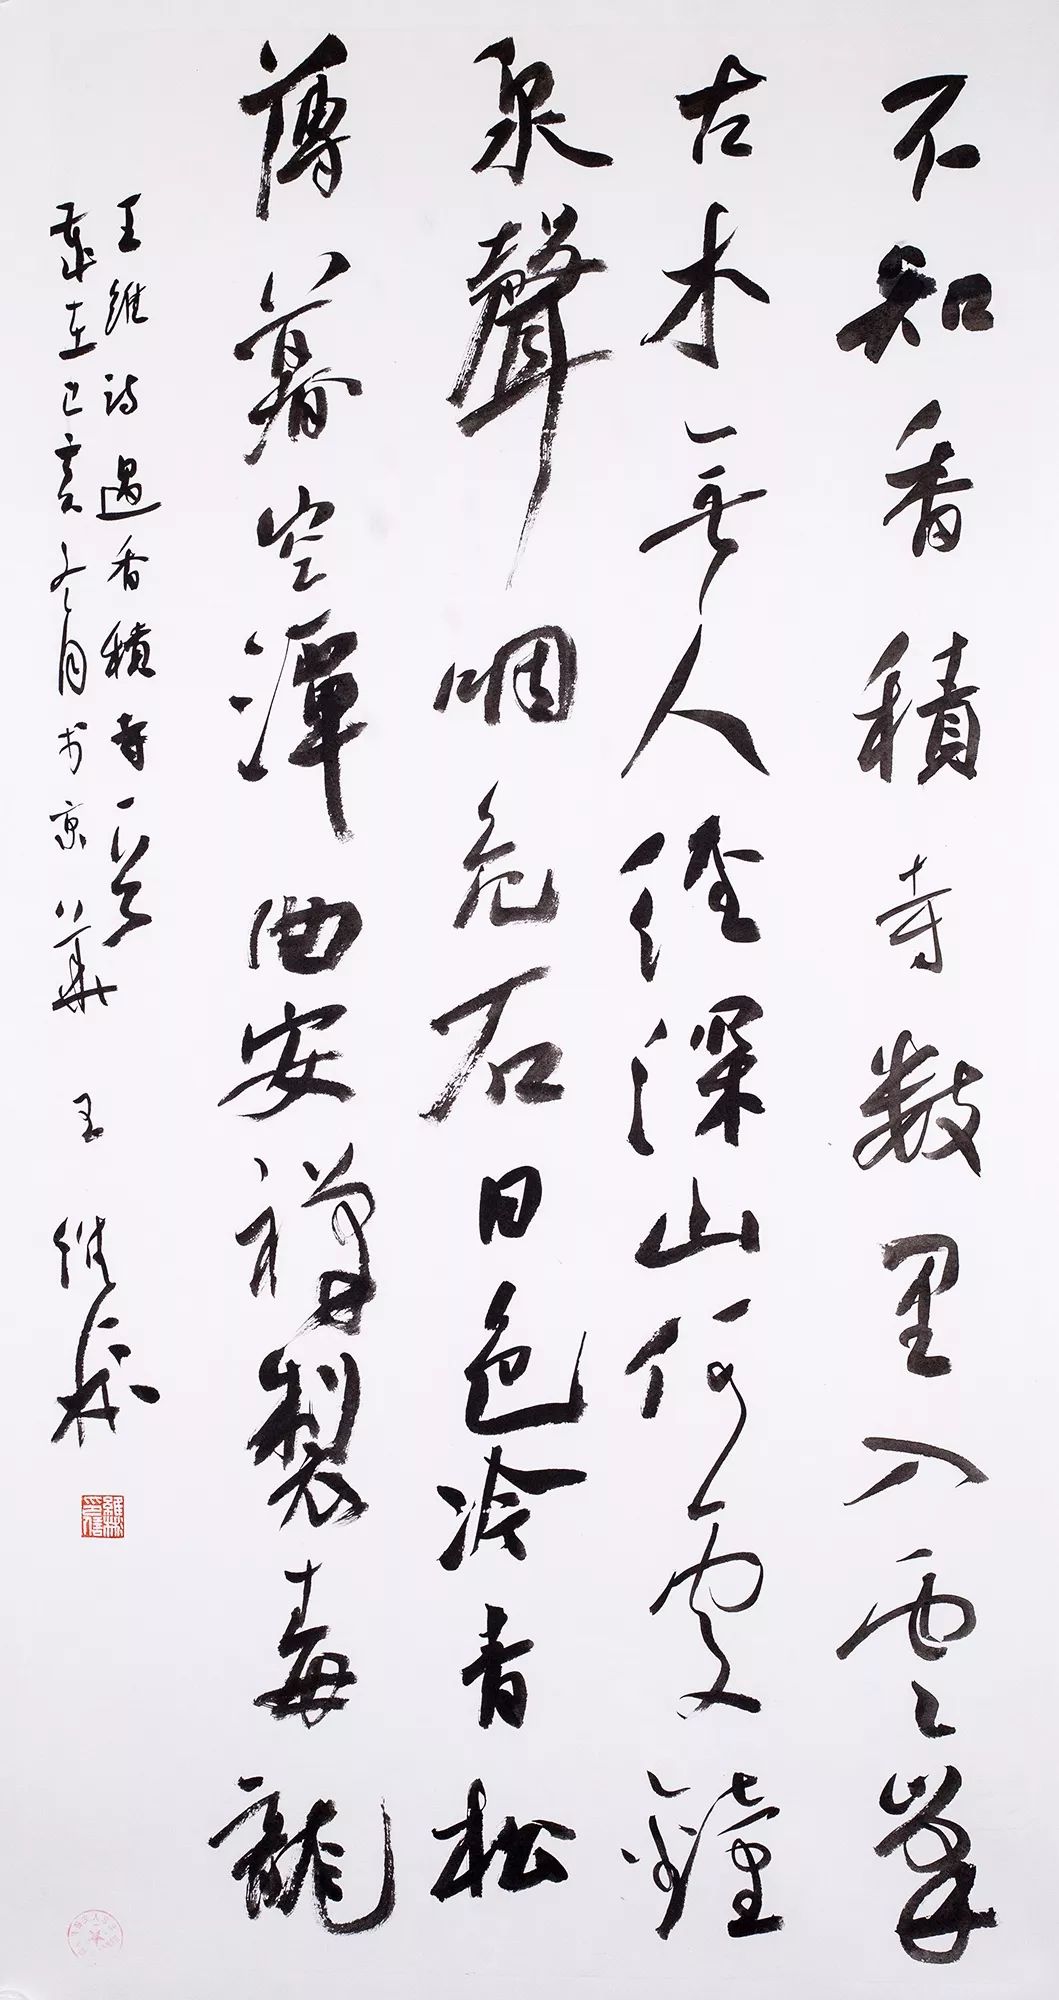 不知香積寺數里入雲峯
古木無人徑深山何處鐘
泉聲咽危石日色冷青松
薄暮空潭曲安禪製毒龍
王維詩過香積寺一首
歲在己亥冬月於京華 王維林
維林之信